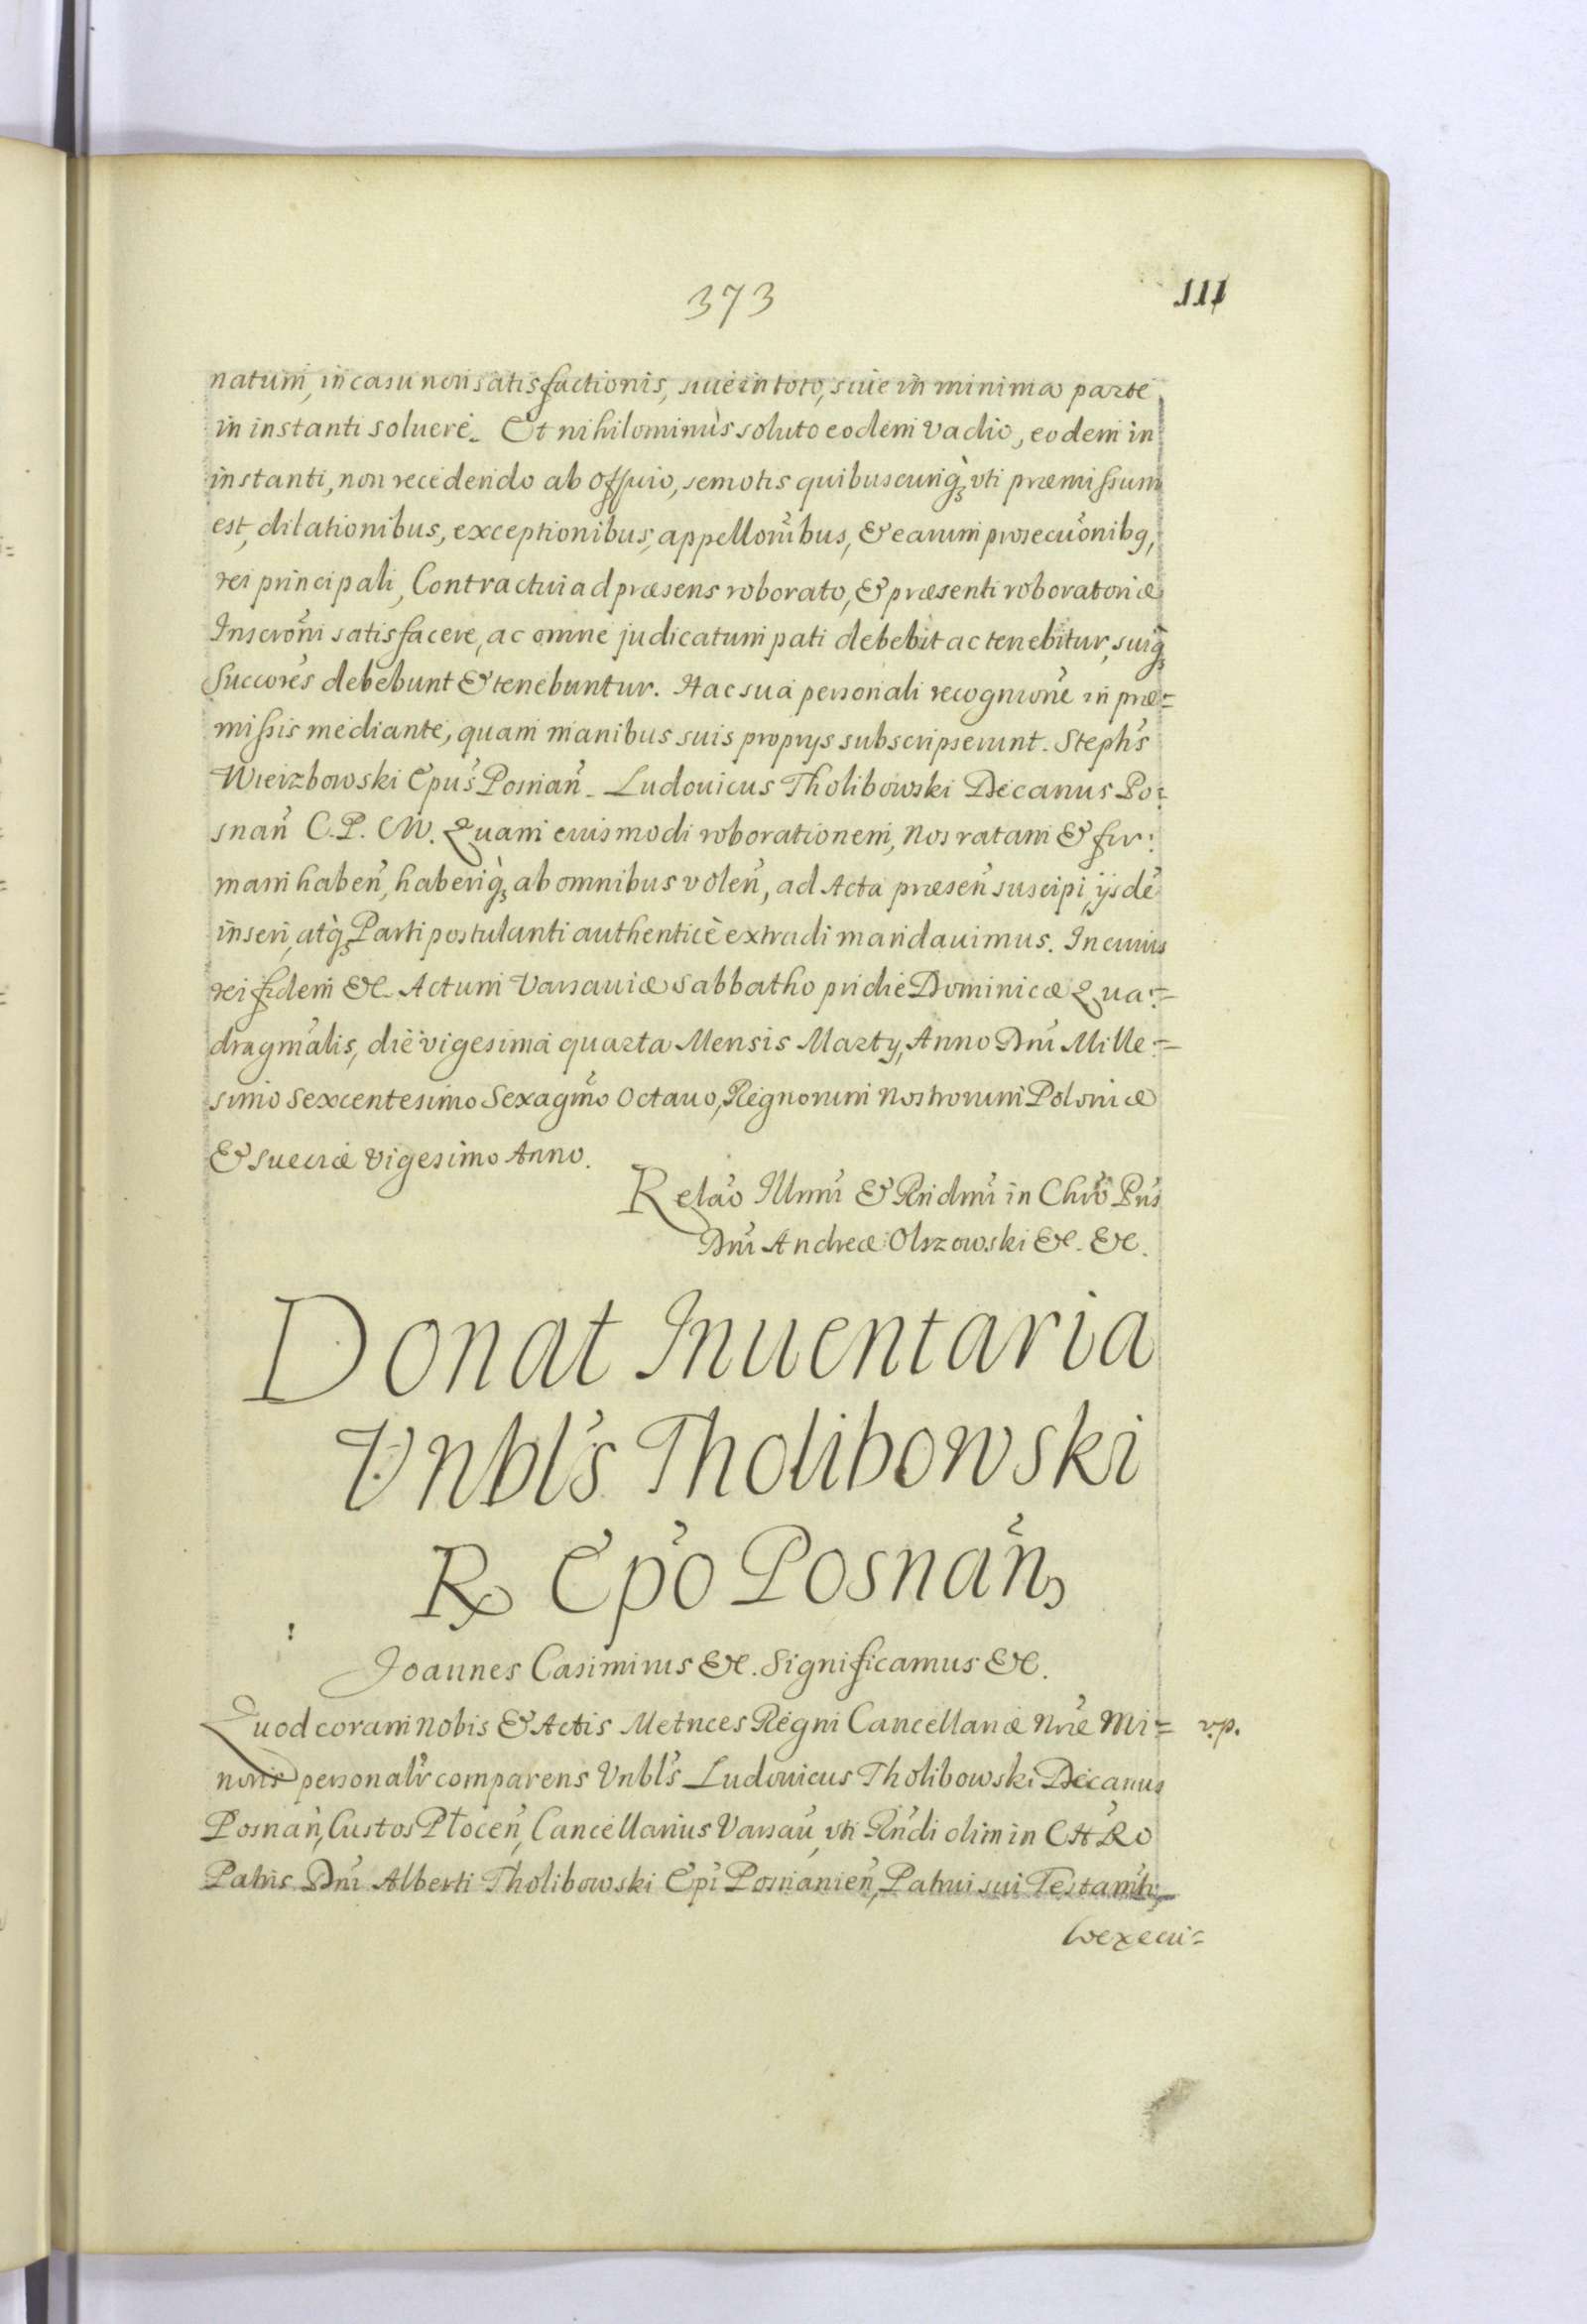 373
111
natum, in casu non satisfactionis, siue in toto, siue in minima parte
in instanti soluere. Et nihilominùs soluto eodem vadio, eodem in
instanti, non recedendo ab Officio, semotis quibuscunq̀ȝ vti præmissum
est, dilationibus, exceptionibus, appellōnibus, & earum prosecuōnibq,
rei principali, Contractui ad præsens roborato, & præsenti roboratoriæ
Inscrōni satisfacere, ac omne judicatum pati debebit ac tenebitur, suiq̀ȝ
Succores debebunt & tenebuntur. Hac sua personali recognione in præ=
missis mediante, quam manibus suis proprys subscripserunt. Stephs
Wierzbowski Epus Posnan̄. Ludouicus Tholibowski Decanus Po=
snan̄ C.P. M. Quam euismodi roborationem, Nos ratam & fir:
mam haben̄, haberiq̀ȝ ab omnibus volen̄, ad Acta præsen̄ suscipi, ijsdē
inseri, atq̀ȝ Parti postulanti authenticè extradi mandauimus. In cuius
rei fidem &c. Actum Varsauiæ Sabbatho pridie Dominicæ Qua=
dragmalis, die vigesima quarta Mensis Marty, Anno Dni Mille=
simo Sexcentesimo Sexagmo Octauo, Regnorum Nostrorum Poloniæ
& Sueciæ Vigesimo Anno.
Relāo Illmi & Rndmi in Chrō Pris
Dni Andreæ Olszowski &c. &c.
Donat Inuentaria
Vnbls Tholibowski
R Epō Posnan̄
Joannes Casimirus &c. Significamus &c.
Quod coram Nobis & Actis Metrices Regni Cancellariæ Nræ Mi= v.p.
noris personalr comparens Vnbls Ludouicus Tholibowski Decanus
Posnan̄, Custos Płocen̄, Cancellarius Varsau, vti Rndi olim in CHRO
Patris Dni Alberti Tholibowski Epi Posnanien̄, Patrui sui Testamti
coexecu=